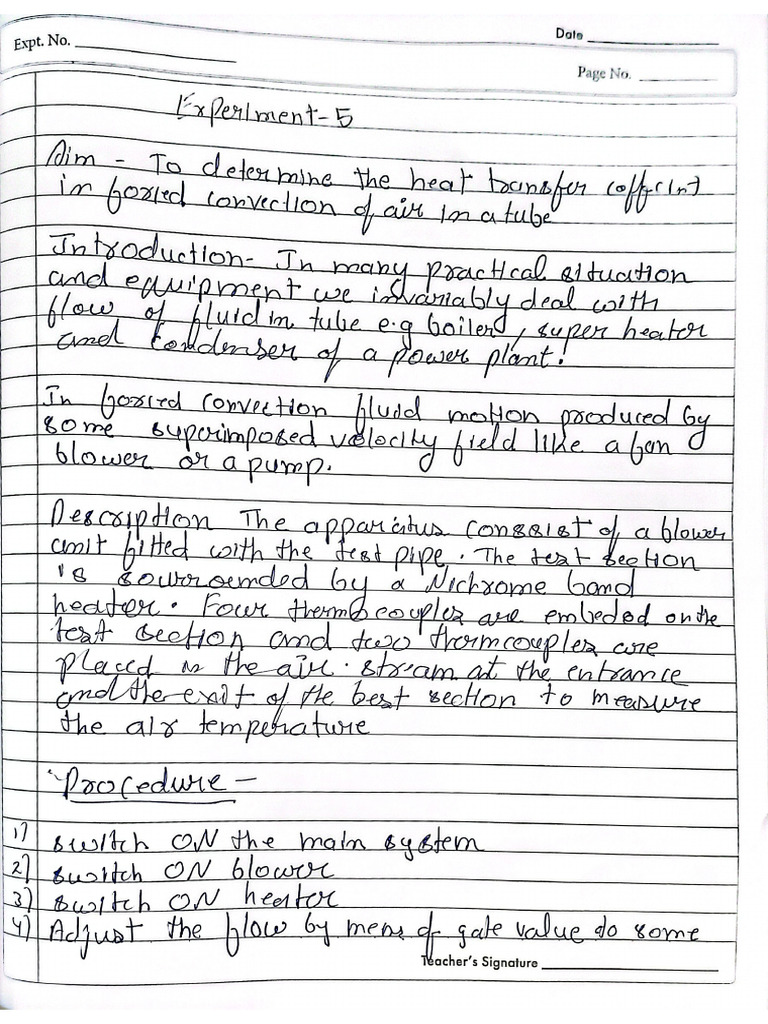 Expt. No.
Date
Page No.
Experiment-5
Aim - To determine the heat transfer cofficint
in forced convection of air in a tube
Introduction- In many practical situation
and equipment we invariably deal with
flow of fluid in tube e.g boiler, super heator
and condenser of a power plant.
In forced convection fluid motion produced by
some superimposed velocity field like a fan
blower or a pump.
Description The apparatus consist of a blower
unit fitted with the test pipe. The test section
is sourrounded by a Nichrome band
heater. Four thermocouples are embeded on the
test section and two thermcouples are
placed in the air stream at the entrance
and the exit of the best section to measure
the air temperature
Procedure -
1) switch ON the main system
2) switch ON blower
3) switch ON heator
4) Adjust the flow by mens of gate value do some
Teacher's Signature